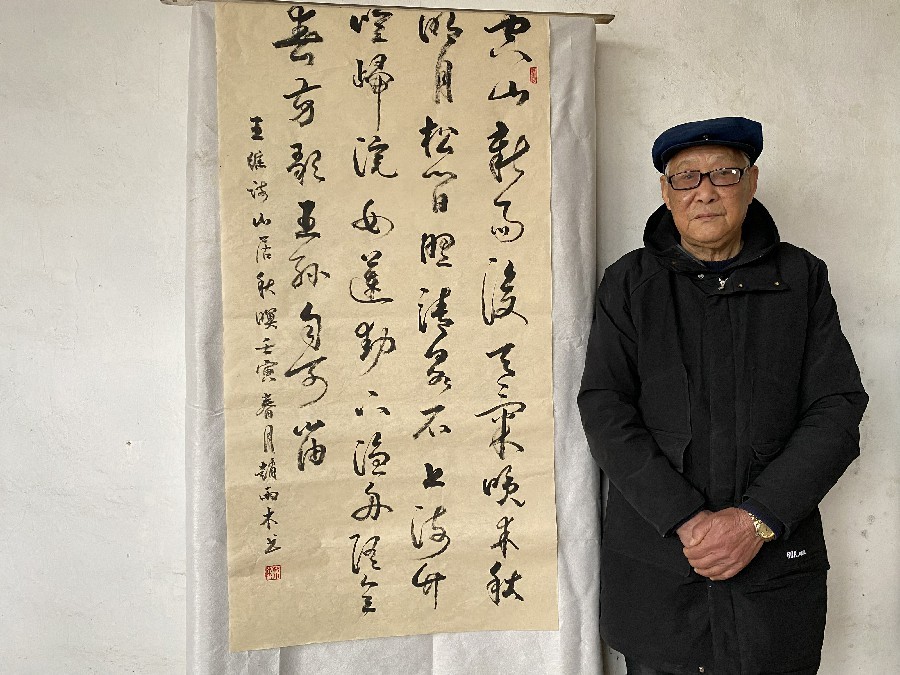 空山新雨後天氣晚來秋
明月松间照清泉石上流竹
喧歸浣女蓮動下漁舟隨意
春芳歇王孫自可留
王維诗山居秋暝壬寅春月趙雨木书